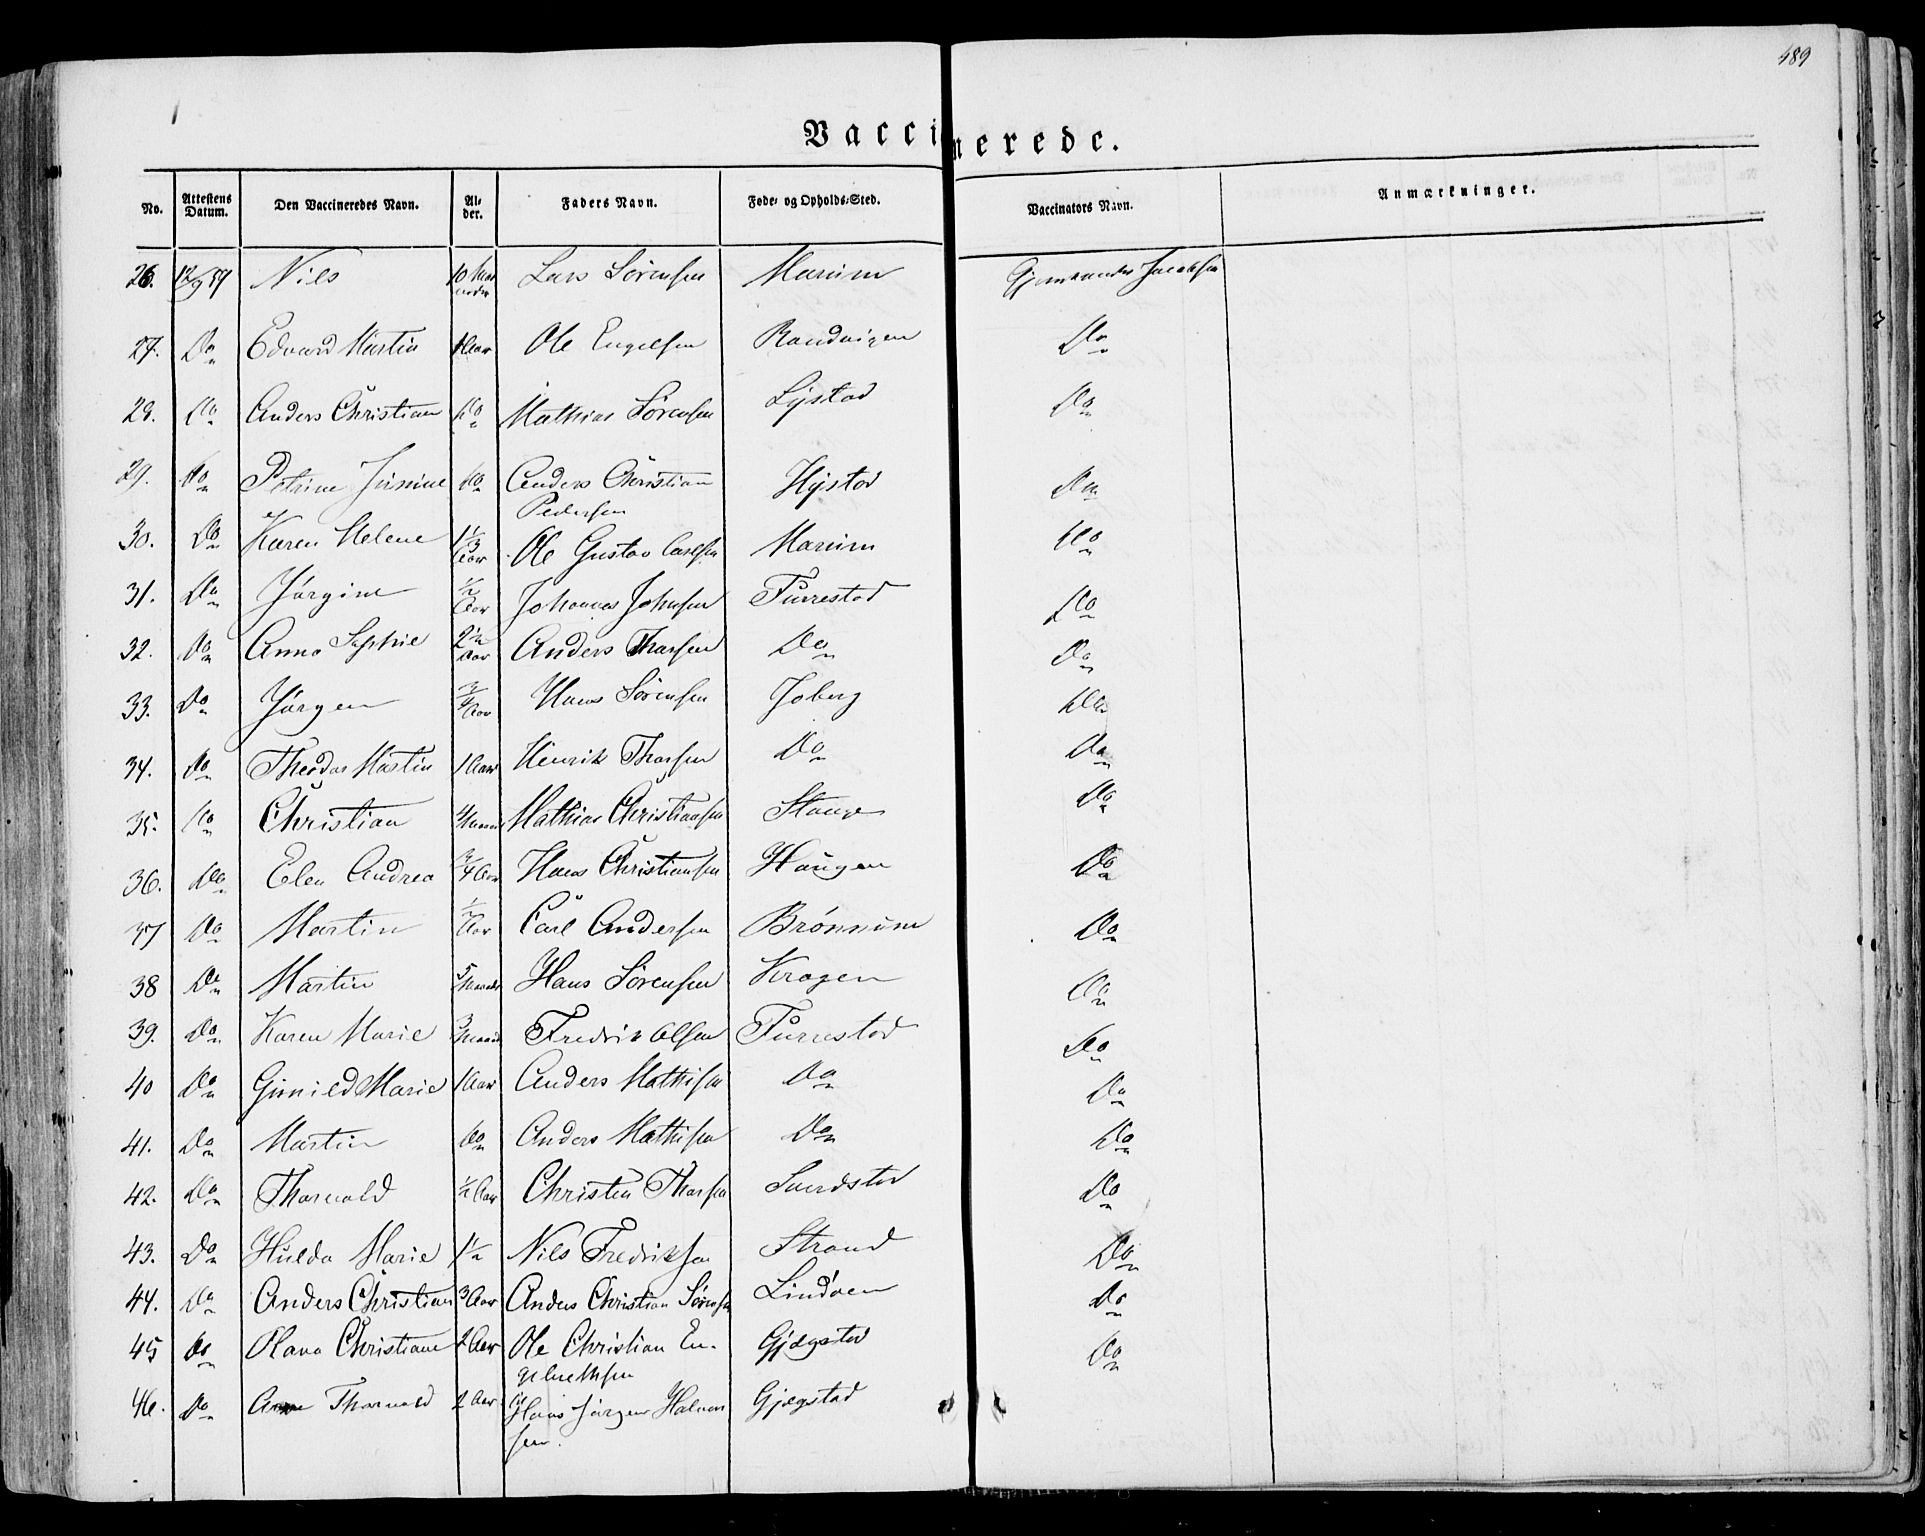 489
Vaccinerede.
No. Attestens Datum. Den Vaccineredes Navn. Al-der. Faders Navn. Føde- og Opholds-Sted. Vaccinators Navn. Anmærkninger.
26. 12/9 59 Nils 10 Lars Sørensen Marum Jacobsen
27. Do Edvard Martin 1 Aar Ole Engelsen Randvigen Do
28. Do Anders Christian Do Mathias Sørensen Lystad Do
29. Do Petrine Do Anders Christian Pedersen Hystad Do
30. Do Karen Helene 1 1/3 Aar Ole Gustav Carlsen Marum Do
31. Do Jørgine 1/2 Aar Johannes Johnsen Furrestad Do
32. Do Anna Sophie 2 1/2 Aar Anders Thorsen Do Do
33. Do Jørgen 3/4 Aar Hans Sørensen Joberg Do
34. Do Theodor Martin 1 Aar Henrik Thorsen Do Do
35. Do Christian 4 Mathias Christiansen Stange Do
36. Do Elen Andrea 3/4 Aar Hans Christiansen Haugen Do
37 Do Martin Aar Carl Andersen Brønnum Do
38 Do Martin 5 Hans Sørensen Kragen Do
39. Do Karen Marie 3 Fredrik Olsen Furrestad Do
40 Do Gunild Marie 1 Aar Anders Mathisen Do Do
41. Do Martin Do Anders Mathisen Do Do
42. Do Thorvald 1/2 Aar Christen Thorsen Sundstød Do
43. Do Hulda Marie 1 1/2 Nils Fredriksen Strand Do
44. Do Anders Christian 3 Aar Anders Christian Sørensen Lindøen Do
45 Do Olava Christiane 2 Aar Ole Christian En-gebrethsen Gjægstad Do
46. Do Thorvald 2 Aar Hans Jørgen Halvorsen. Gjægstad